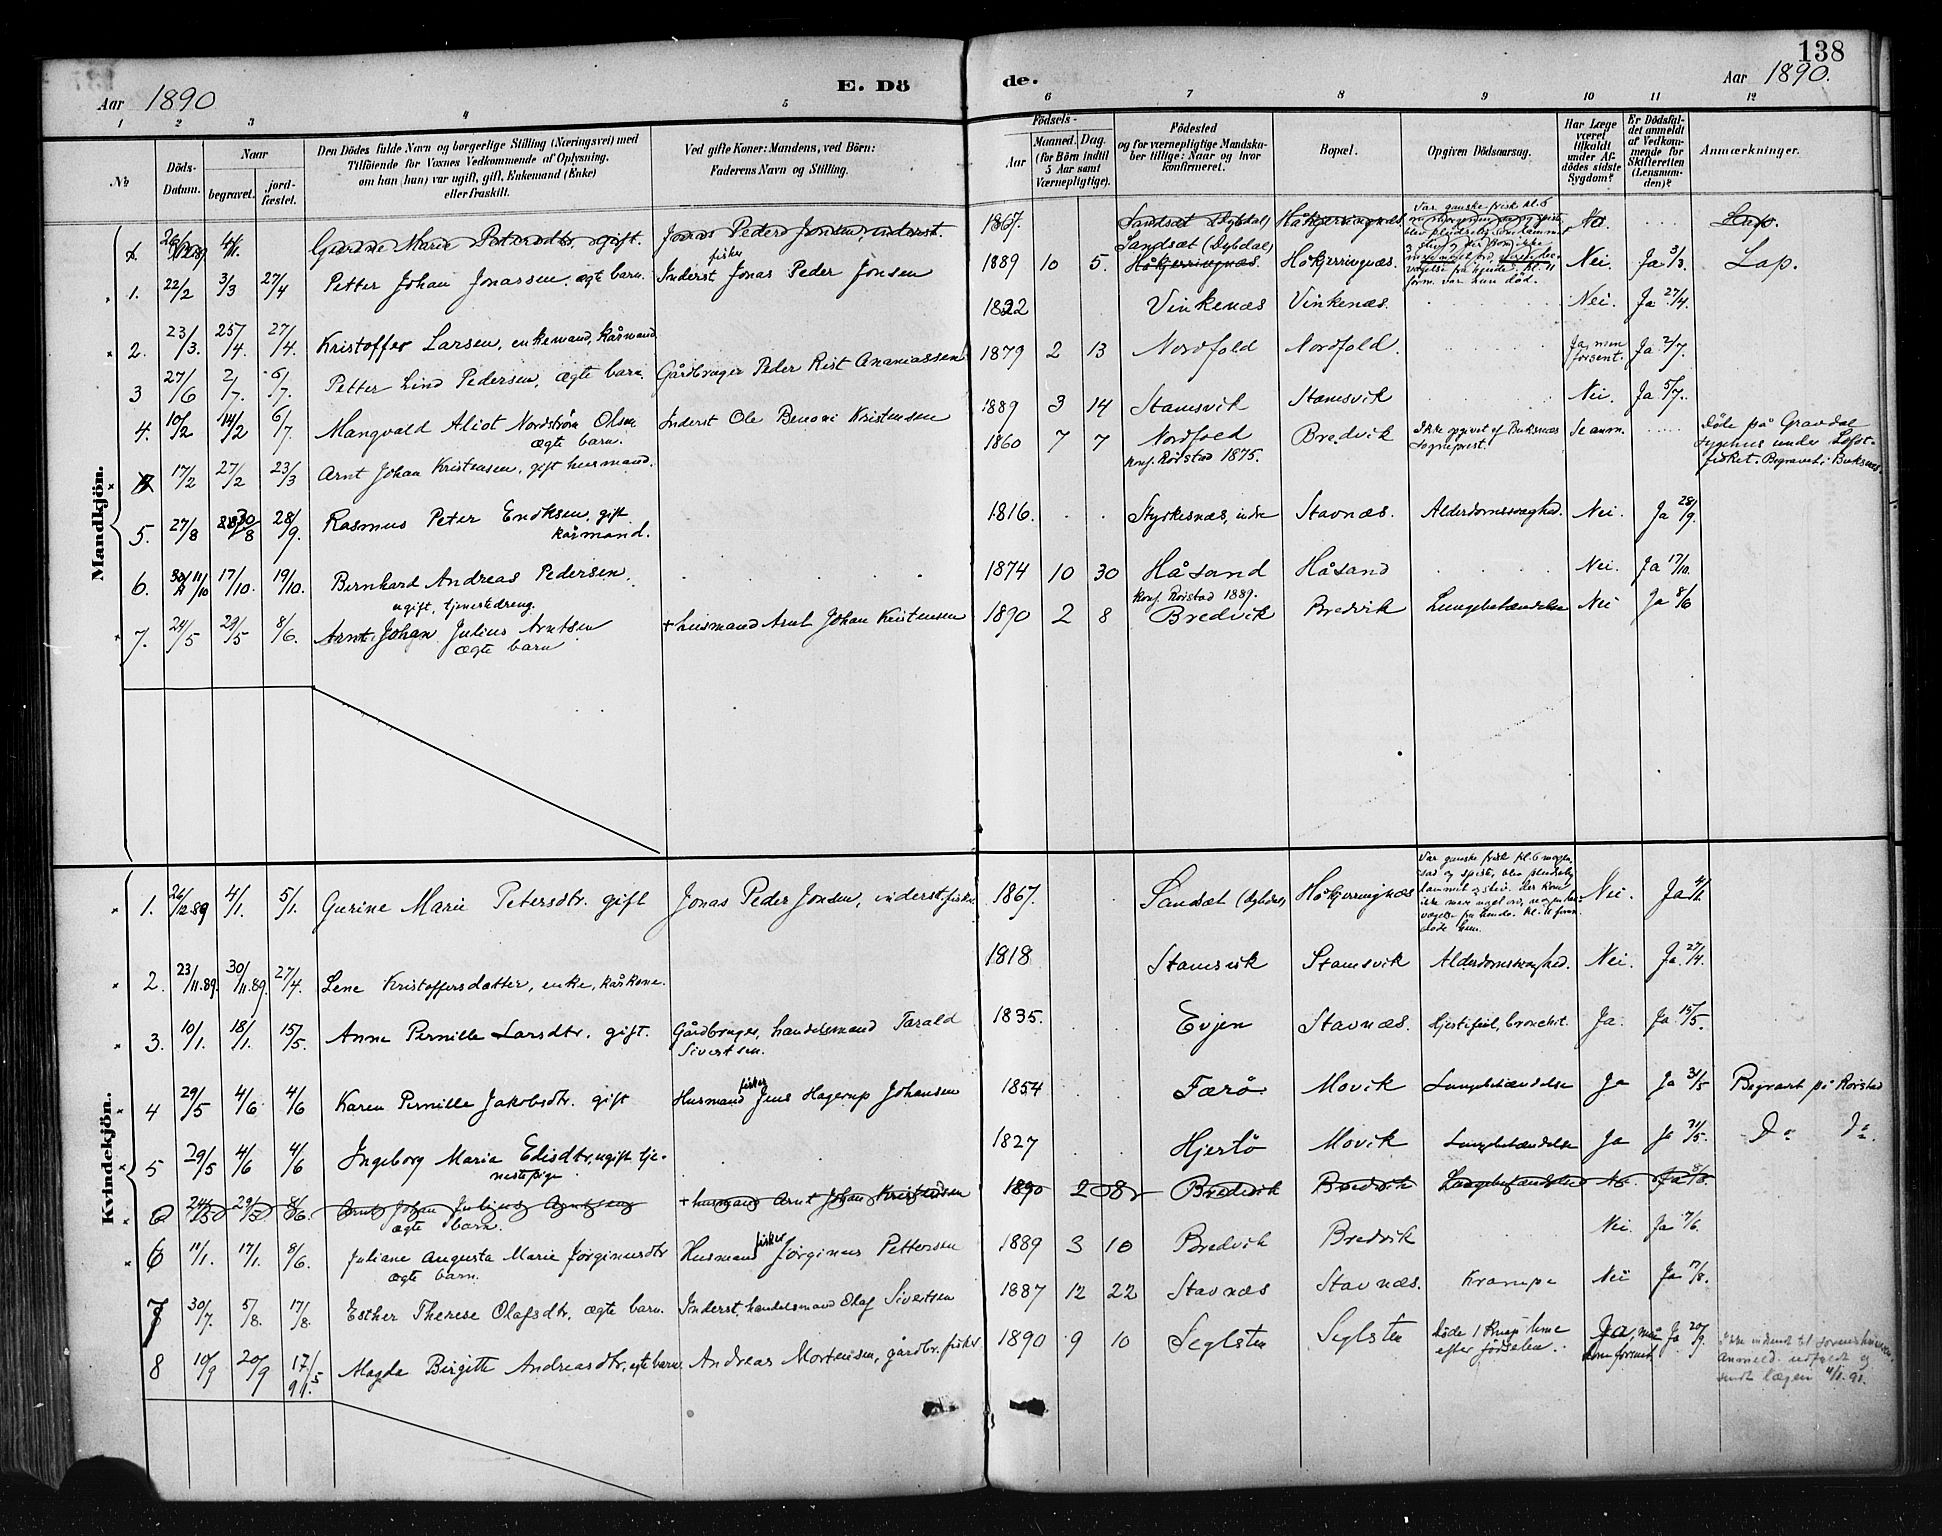 138
Aar 1890
E. Dö
de.
Aar 1890.
1 2 3 4 5 6 7 8 9 10 11 12
No
Döds-
Datum.
Naar
begravet.
jord-
fæstet.
Den Dödes fulde Navn og borgerlige Stilling (Næringsvei) med
Tilföiende for Voxnes Vedkommende af Oplysning,
om han (hun) var ugift, gift, Enkemand (Enke)
eller fraskilt.
Ved gifte Koner: Mandens, ved Börn:
Faderens Navn og Stilling.
Födsels-
Aar
Maaned.
Dag.
(for Börn indtil
5 Aar samt
Værnepligtige).
Födested
og for værnepligtige Mandska-
ber tillige: Naar og hvor
konfirmeret.
Bopæl.
Opgiven Dödsaarsag.
Har Læge
været
tilkaldt
under Af-
dödes sidste
Sygdom?
Er Dödsfal-
det anmeldt
af Vedkom-
mende for
Skifteretten
(Lensman-
den)?
Anmærkninger.
Mandkjön.
1. 26/12 89 4/1. Gurine Marie Petersdtr, gift. Jonas Peder Jonsen, inderst. 1867. Sandsæt (Dybdal) Håkjerringnæs. Lap.
1. 22/2 3/3 27/4 Petter Johan Jonassen, ægte barn. Inderst fisker Jonas Peder Jonsen 1889 10 5. Sandsæt (Dybdal) Håkjerringnæs. Håkjerringnæs. Nei. Ja 3/3. Lap.
2. 23/3. 25/4. 27/4. Kristoffer Larsen, enkemand, kårmand. 1822 Vinkenæs Vinkenæs. Nei. Ja 27/4.
3 27/6 2/7. 6/7. Petter Lind Pedersen, ægte barn. Gårdbruger Peder Rist Ananiassen 1879 2 13 Nordfold Nordfold. Ja, men forsent. Ja 2/7.
4. 10/2 14/2 6/7. Mangvald Aliot Nordstrøm Olsen
ægte barn. Inderst Ole Benoni Kristensen 1889 3 14 Stamsvik Stamsvik Nei. Ja 5/7.
17/2 27/2 23/3 Arnt Johan Kristensen, gift husmand. 1860 7 7 Nordfold
Konf. Rörstad 1875. Bredvik Ikke opgivet af Buksnæs
Sogneprest. Se anm. Döde på Gravdal
sygehus under Lofot-
fisket. Begravet i Buksnæs.
5. 27/8 30/8 28/9. Rasmus Peter Eriksen, gift
kårmand. 1816. Styrkesnæs, indre Stavnæs. Alderdomssvaghed. Nei. Ja 28/9.
6. 11/10 17/10. 19/10. Bernhard Andreas Pedersen
ugift, tjenestedreng. 1874 10 30 Håsand
Konf. Rörstad 1889. Håsand Nei. Ja 17/10.
7. 24/5 29/5 8/6. Arnt Johan Julius Arntsen
ægte barn + husmand Arnt Johan Kristensen 1890 2 8 Bredvik Bredvik Lungebetændelse Nei Ja 8/6
Kvindekjön.
1. 26/12 89 4/1. 5/1. Gurine Marie Petersdtr. gift Jonas Peder Jonsen, inderst, fisker. 1867. Sandsæt (Dybdal) Håkjerringnæs Var ganske frisk kl. 6 Nei. Ja 4/1.
2. 23/11.89. 30/11.89. 27/4. Lene Kristoffersdatter, enke, kårkone. 1818 Stamsvik Stamsvik Alderdomssvaghed. Nei. Ja. 27/4.
3. 10/1. 18/1. 15/5. Anne Pernille Larsdtr. gift. Gårdbruger, handelsmand Tarald
Sivertsen. 1835. Evjen Stavnæs. Hjertefeil, bronchit. Ja. Ja. 15/5.
4 29/5 4/6 4/6 Karen Pernille Jakobsdtr. gift Husmand fisker Jens Hagerup Johansen 1854 Færö. Movik Lungebetændelse Ja Ja 31/5 Begravt på Rörstad
5 29/5 4/6 4/6 Ingeborg Maria Edisdtr, ugift tje-
nestepige 1827 Hjertö Movik Lungebetændelse Ja Ja 31/5. Do Do.
6 24/5 29/5 8/6. Arnt Johan Julius Arntsen
ægte barn. + husmand Arnt Johan Kristensen 1890 2 8 Bredvik Bredvik Lungebetændelse Nei Ja 8/6.
6 11/1. 17/1. 8/6. Juliane Augusta Marie Jørginusdtr
ægte barn. Husmand fisker Jørginus Pettersen 1889 3 10 Bredvik Bredvik Nei Ja 7/6
7 30/7. 5/8. 17/8. Esther Therese Olafsdtr. ægte barn. Inderst, handelsmand Olaf Sivertsen 1887 12 22 Stavnæs Stavnæs. Krampe Nei Ja 17/8.
8 10/9 20/9 17/5 91. Magda Birgitte Andreasdtr, egte barn. Andreas Mortensen, gårdbr. fisker 1890 9 10 Seglsten Seglsten Döde 1 Knap time
efter födselen. Ja, men
kom forsent Ja 20/9.
Anmeld. udfyldt og
sendt lægen 4/1. 91.